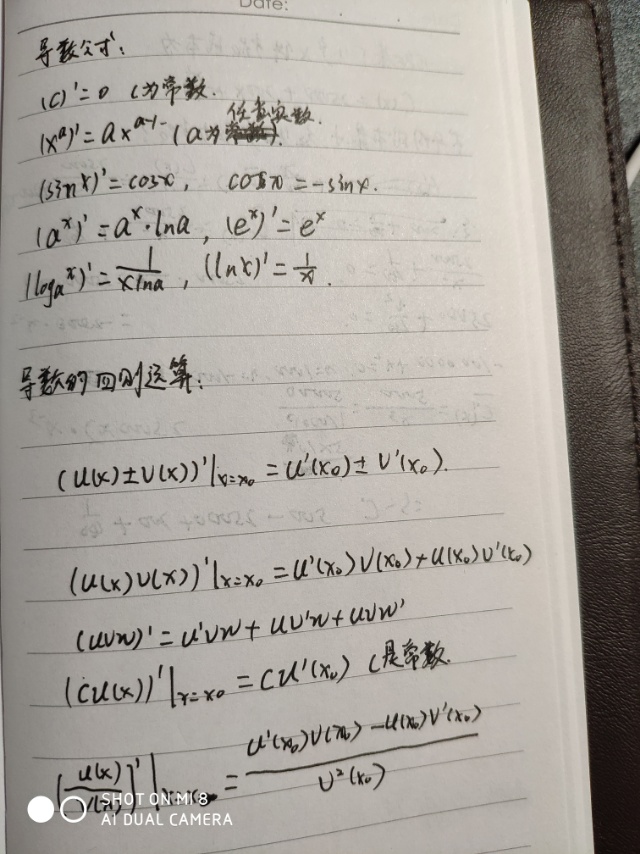 Date:
导数公式:
(C)'=0 C为常数.
任意实数.
(xᵃ)'=axᵃ⁻¹ (a为).
(sinx)'=cosx, cosx=-sinx.
(aˣ)'=aˣ·lna, (eˣ)'=eˣ
(logₐˣ)'=1/(xlna), (lnx)'=1/x.
导数的四则运算:
(u(x)±v(x))'|ₓ₌ₓ₀=u'(x₀)±v'(x₀).
(u(x)v(x))'|ₓ₌ₓ₀=u'(x₀)v(x₀)+u(x₀)v'(x₀)
(uvw)'=u'vw+uv'w+uvw'
(cu(x))'|ₓ₌ₓ₀=cu'(x₀) C是常数.
[u(x)/v(x)]'|ₓ₌ₓ₀=(u'(x₀)v(x₀)-u(x₀)v'(x₀))/v²(x₀)
SHOT ON MI 8
AI DUAL CAMERA